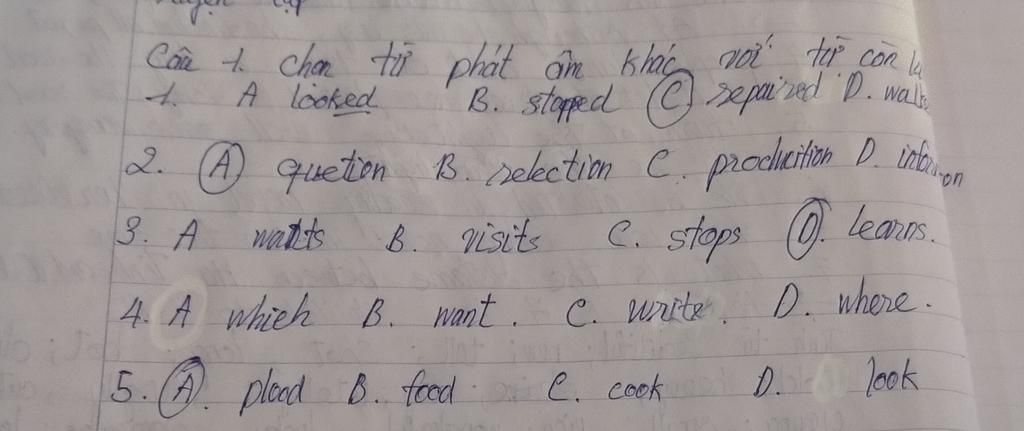 Câu 1. chọn từ phát âm khác với từ còn
1. A looked B. stopped C repaired D.
2. A quetion B. selection C. producition D.
3. A waits B. visits C. stops D. learns.
4. A which B. want. C. write. D. where.
5. A. plood B. food C. cook D. look